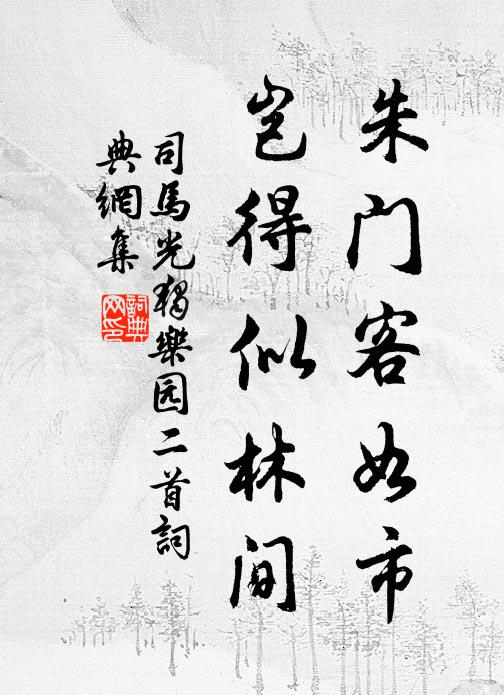 朱門客如市
豈得似林間
司馬光獨樂园二首詞
典網集
詞典
网印